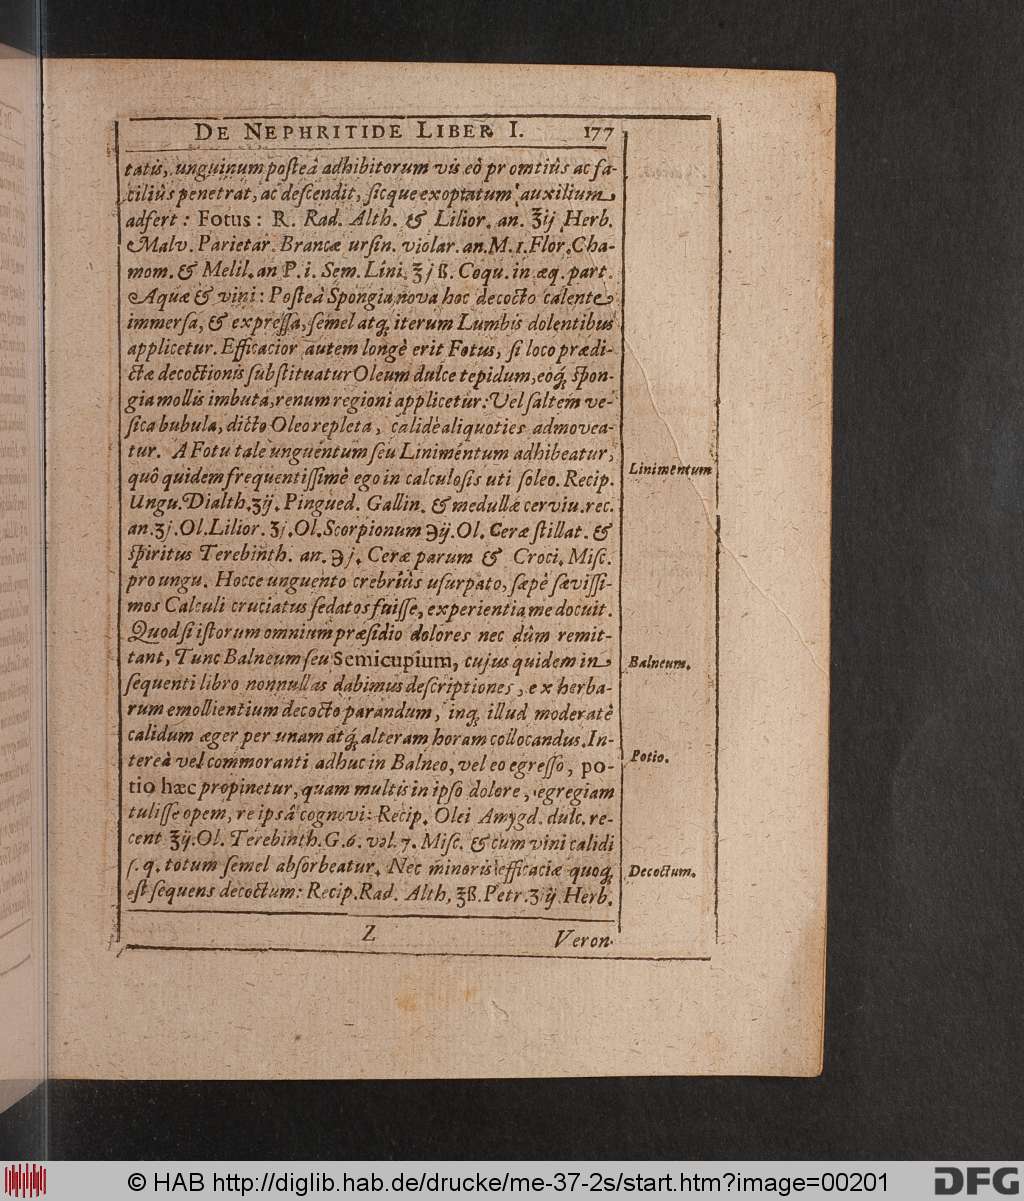 DE NEPHRITIDE LIBER I. 177
tatis, unguinum posteà adhibitorum vis eò promtiùs ac fa-
ciliùs penetrat, ac descendit, sicque exoptatum auxilium
adfert: Fotus: R. Rad. Alth. & Lilior. an. ℥ij Herb.
Malv. Parietar. Brancæ ursin. violar. an. M. 1. Flor. Cha-
mom. & Melil. an P. i. Sem. Lini. ℥jß. Coqu. in æq. part.
Aquæ & vini: Posteà Spongia nova hoc decocto calente
immersa, & expressa, semel atq; iterum Lumbis dolentibus
applicetur. Efficacior autem longè erit Fotus, si loco prædi-
ctæ decoctionis substituatur Oleum dulce tepidum, eoq́; spon-
gia mollis imbuta, renum regioni applicetur: Vel saltem ve-
sica bubula, dicto Oleo repleta, calidè aliquoties admovea-
tur. A Fotu tale unguentum seu Linimentum adhibeatur,
quô quidem frequentissimè ego in calculosis uti soleo. Recip.
Ungu. Dialth. ʒij. Pingued. Gallin. & medullæ cervin. rec.
an. ʒj. Ol. Lilior. ʒj. Ol. Scorpionum ℈ij. Ol. Ceræ stillat. &
spiritus Terebinth. an. ℈j. Ceræ parum & Croci. Misc.
pro ungu. Hocce unguento crebriùs usurpato, sæpè sævissi-
mos Calculi cruciatus sedatos fuisse, experientia me docuit.
Quod si istorum omnium præsidio dolores nec dùm remit-
tant, Tunc Balneum seu Semicupium, cujus quidem in
sequenti libro nonnullas dabimus descriptiones, ex herba-
rum emollientium decocto parandum, inq; illud moderatè
calidum æger per unam atq́; alteram horam collocandus. In-
tereà vel commoranti adhuc in Balneo, vel eo egresso, po-
tio hæc propinetur, quam multis in ipso dolore, egregiam
tulisse opem, re ipsâ cognovi: Recip. Olei Amygd. dulc. re-
cent ℥ij. Ol. Terebinth. G. 6. vel. 7. Misc. & cum vini calidi
s. q. totum semel absorbeatur. Nec minoris efficaciæ quoq;
est sequens decoctum: Recip. Rad. Alth, ℥ß. Petr. ʒij Herb.
Z Veron
Linimentum
Balneum.
Potio.
Decoctum.
© HAB http://diglib.hab.de/drucke/me-37-2s/start.htm?image=00201
DFG